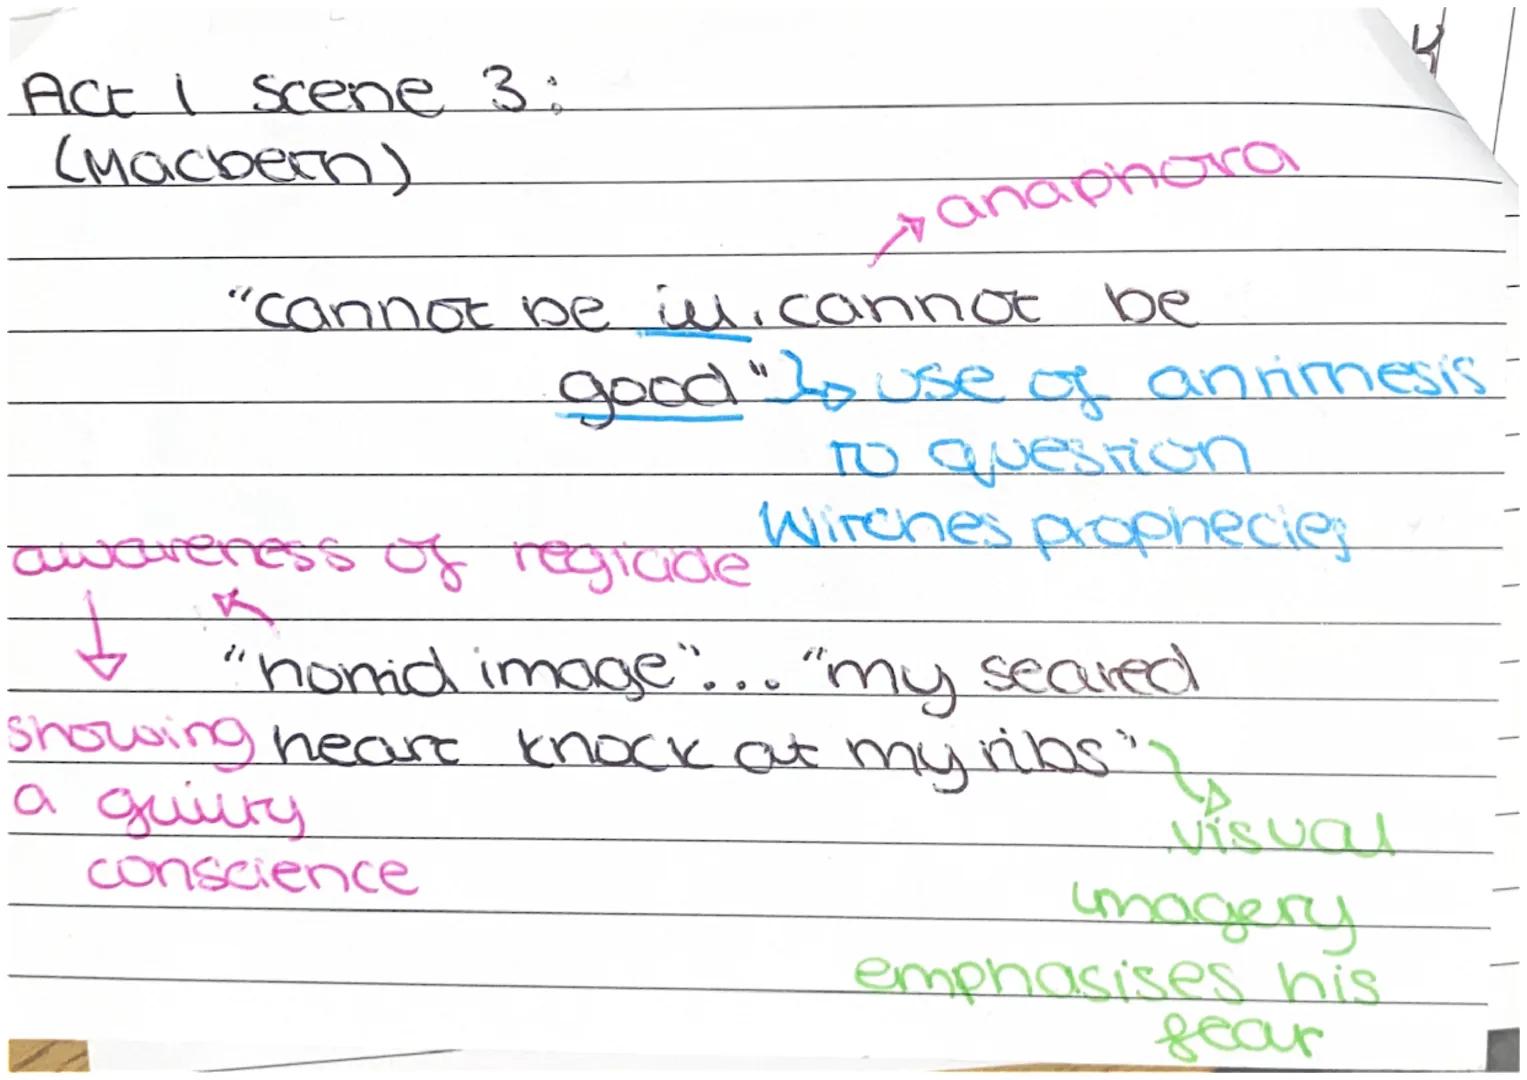 Act 1 Scene 3:
(Macbeth)
anaphora
"cannot be ill, cannot be
good" use of antimesis
to question
Witches prophecies
awareness of regicide
"horrid image"... "my seared
showing heart knock at my ribs"
a guilty
conscience
visual
imagery
emphasises his
fear